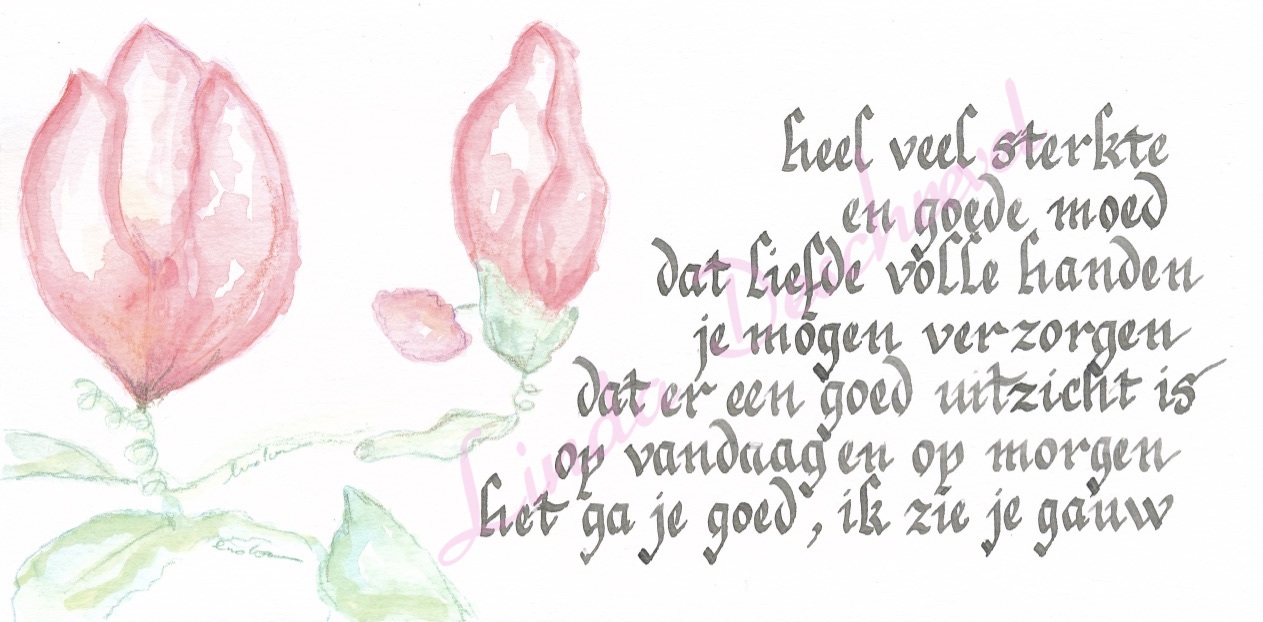 heel veel sterkte
en goede moed
dat liefde volle handen
je mogen verzorgen
dat er een goed uitzicht is
op vandaag en op morgen
het ga je goed, ik zie je gauw
Linda Deschrevel